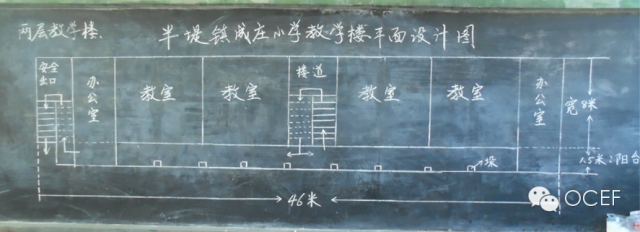 两层教学楼、
半堤镇成庄小学教学楼平面设计图
安全出口
办公室
教室
教室
楼道
教室
教室
办公室
宽8米
垛
1.5米:阳台
46米
OCEF